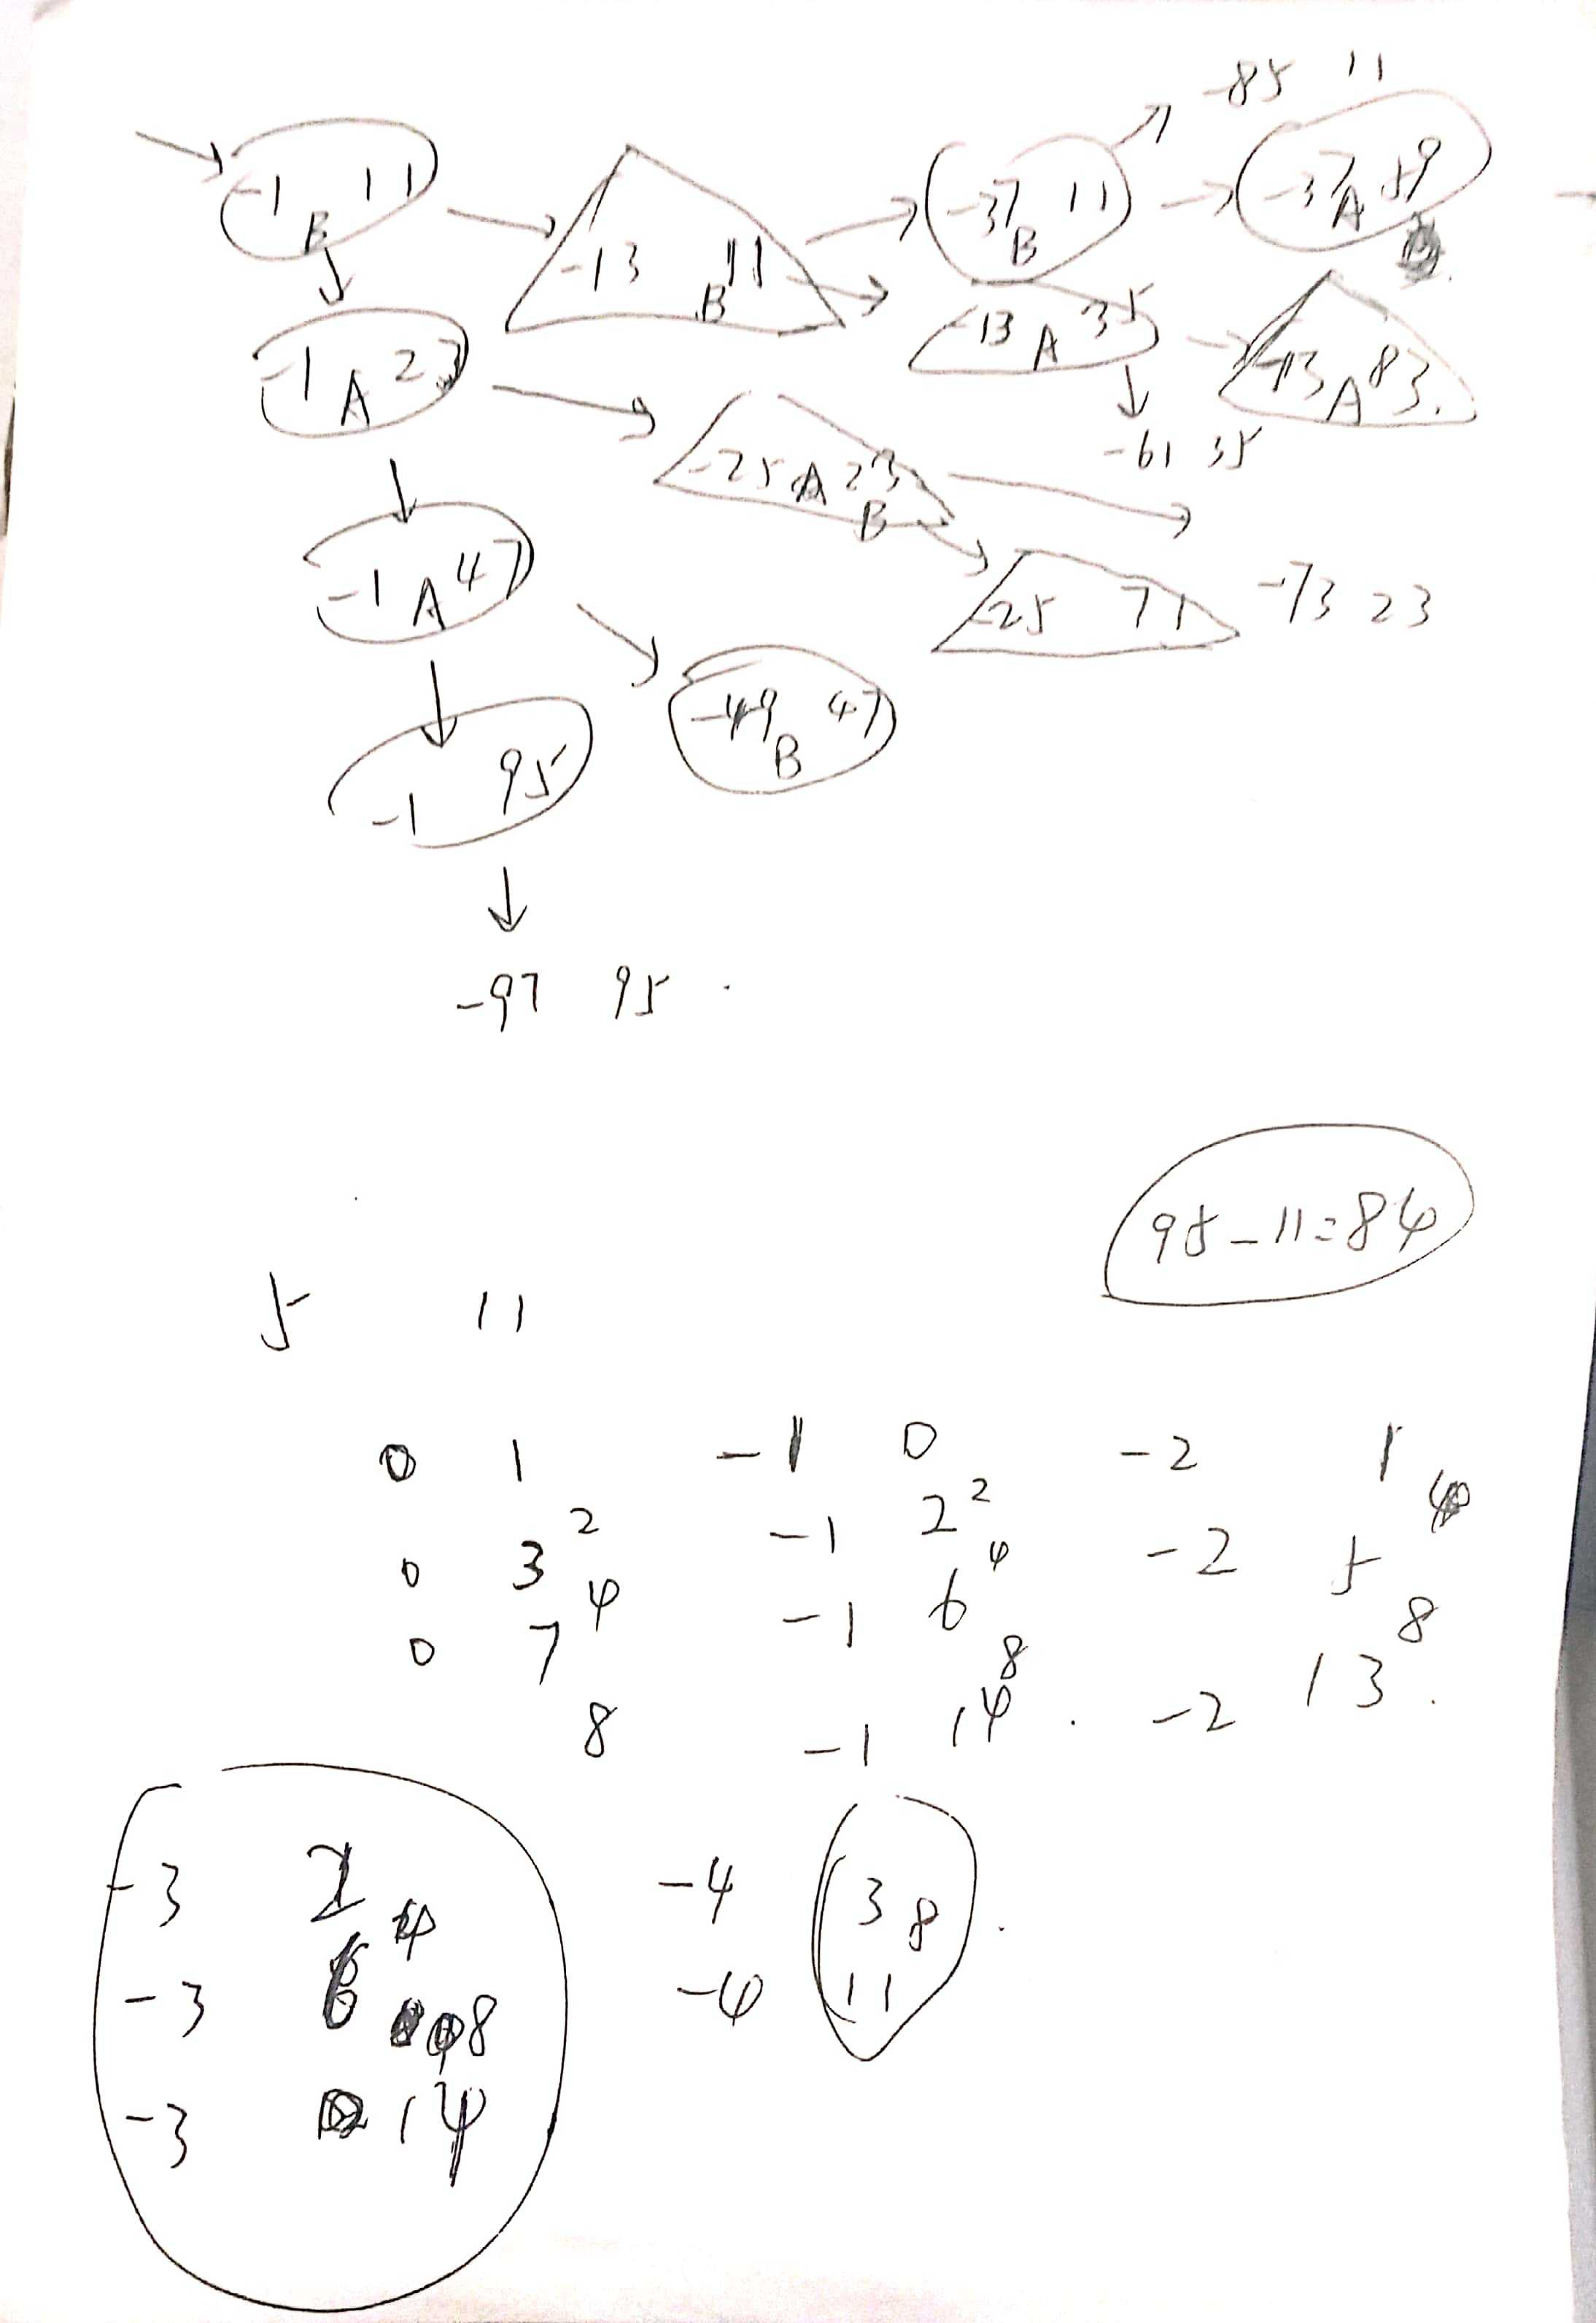 -85 11
-1 B 11
-13 B 11
-37 B 11
-37 A 59
-1 A 23
-13 A 35
-13 A 83.
-25 A 23
B
-61 35
-1 A 47
-25 71
-73 23
-49 B 47
-1 95
-97 95 .
95-11=84
5 11
0 1 -1 0 -2 1
2 2 4
0 3 -1 2 -2 5
4 4 8
0 7 -1 6 -2 13.
8 8
-1 14 .
-3 2 -4 3 8 .
4
-3 6 8 -4 11
-3 14